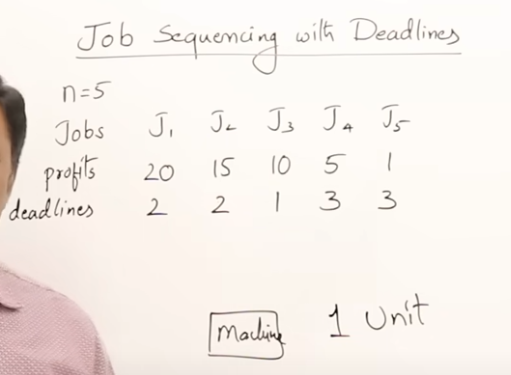 Job Sequencing with Deadlines
n=5
Jobs J₁ J₂ J₃ J₄ J₅
profits 20 15 10 5 1
deadlines 2 2 1 3 3
Machine 1 Unit